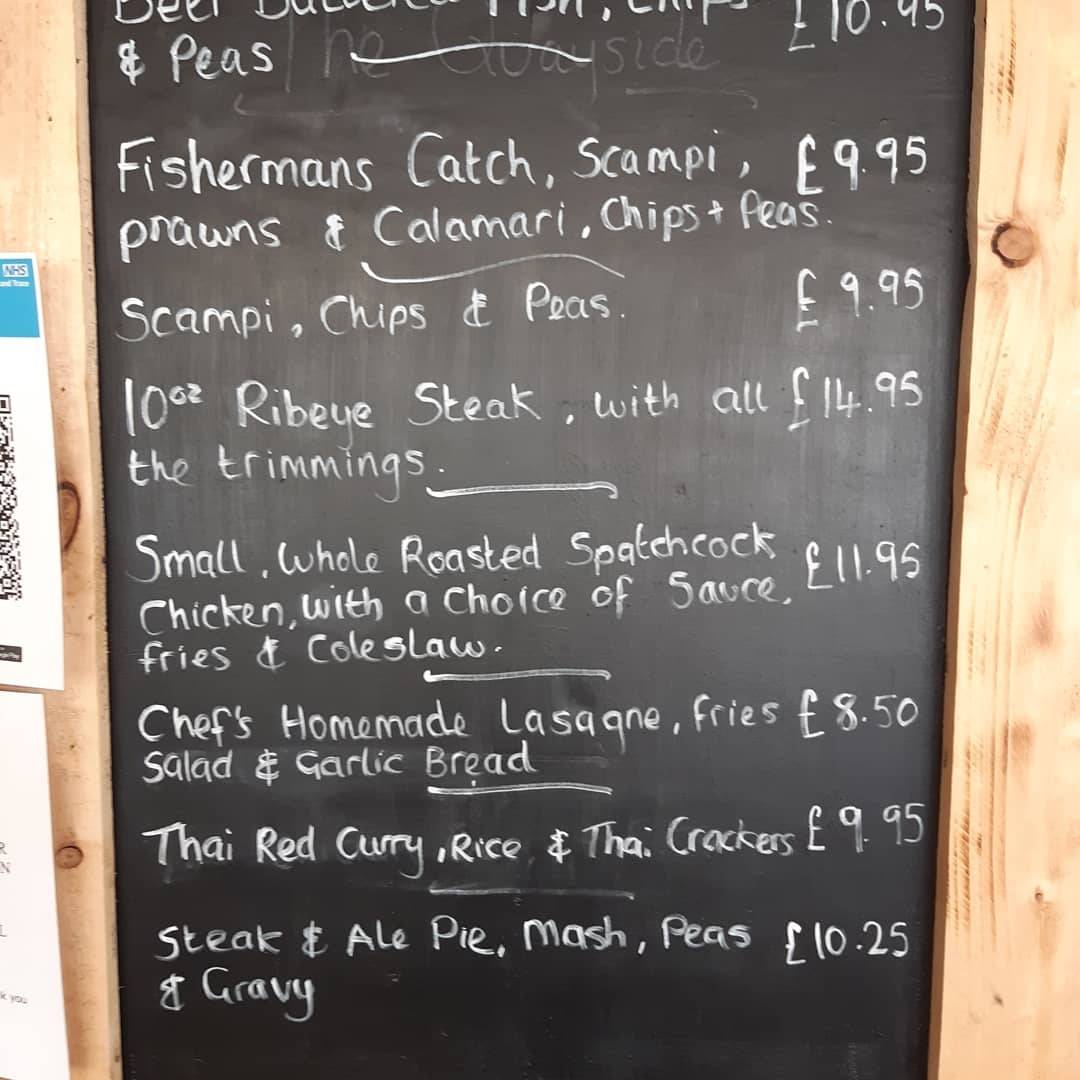 Beer Battered Fish, Chips £10.95
& Peas
The Quayside
Fishermans Catch, Scampi, £9.95
prawns & Calamari, Chips + Peas.
Scampi, Chips & Peas. £9.95
10oz Ribeye Steak, with all £14.95
the trimmings.
Small, whole Roasted Spatchcock £11.95
Chicken, with a choice of Sauce,
fries & Coleslaw.
Chef's Homemade Lasagne, fries £8.50
Salad & Garlic Bread
Thai Red Curry, Rice & Thai Crackers £9.95
Steak & Ale Pie, Mash, Peas £10.25
& Gravy
NHS
and Trace
R
N
L
k you